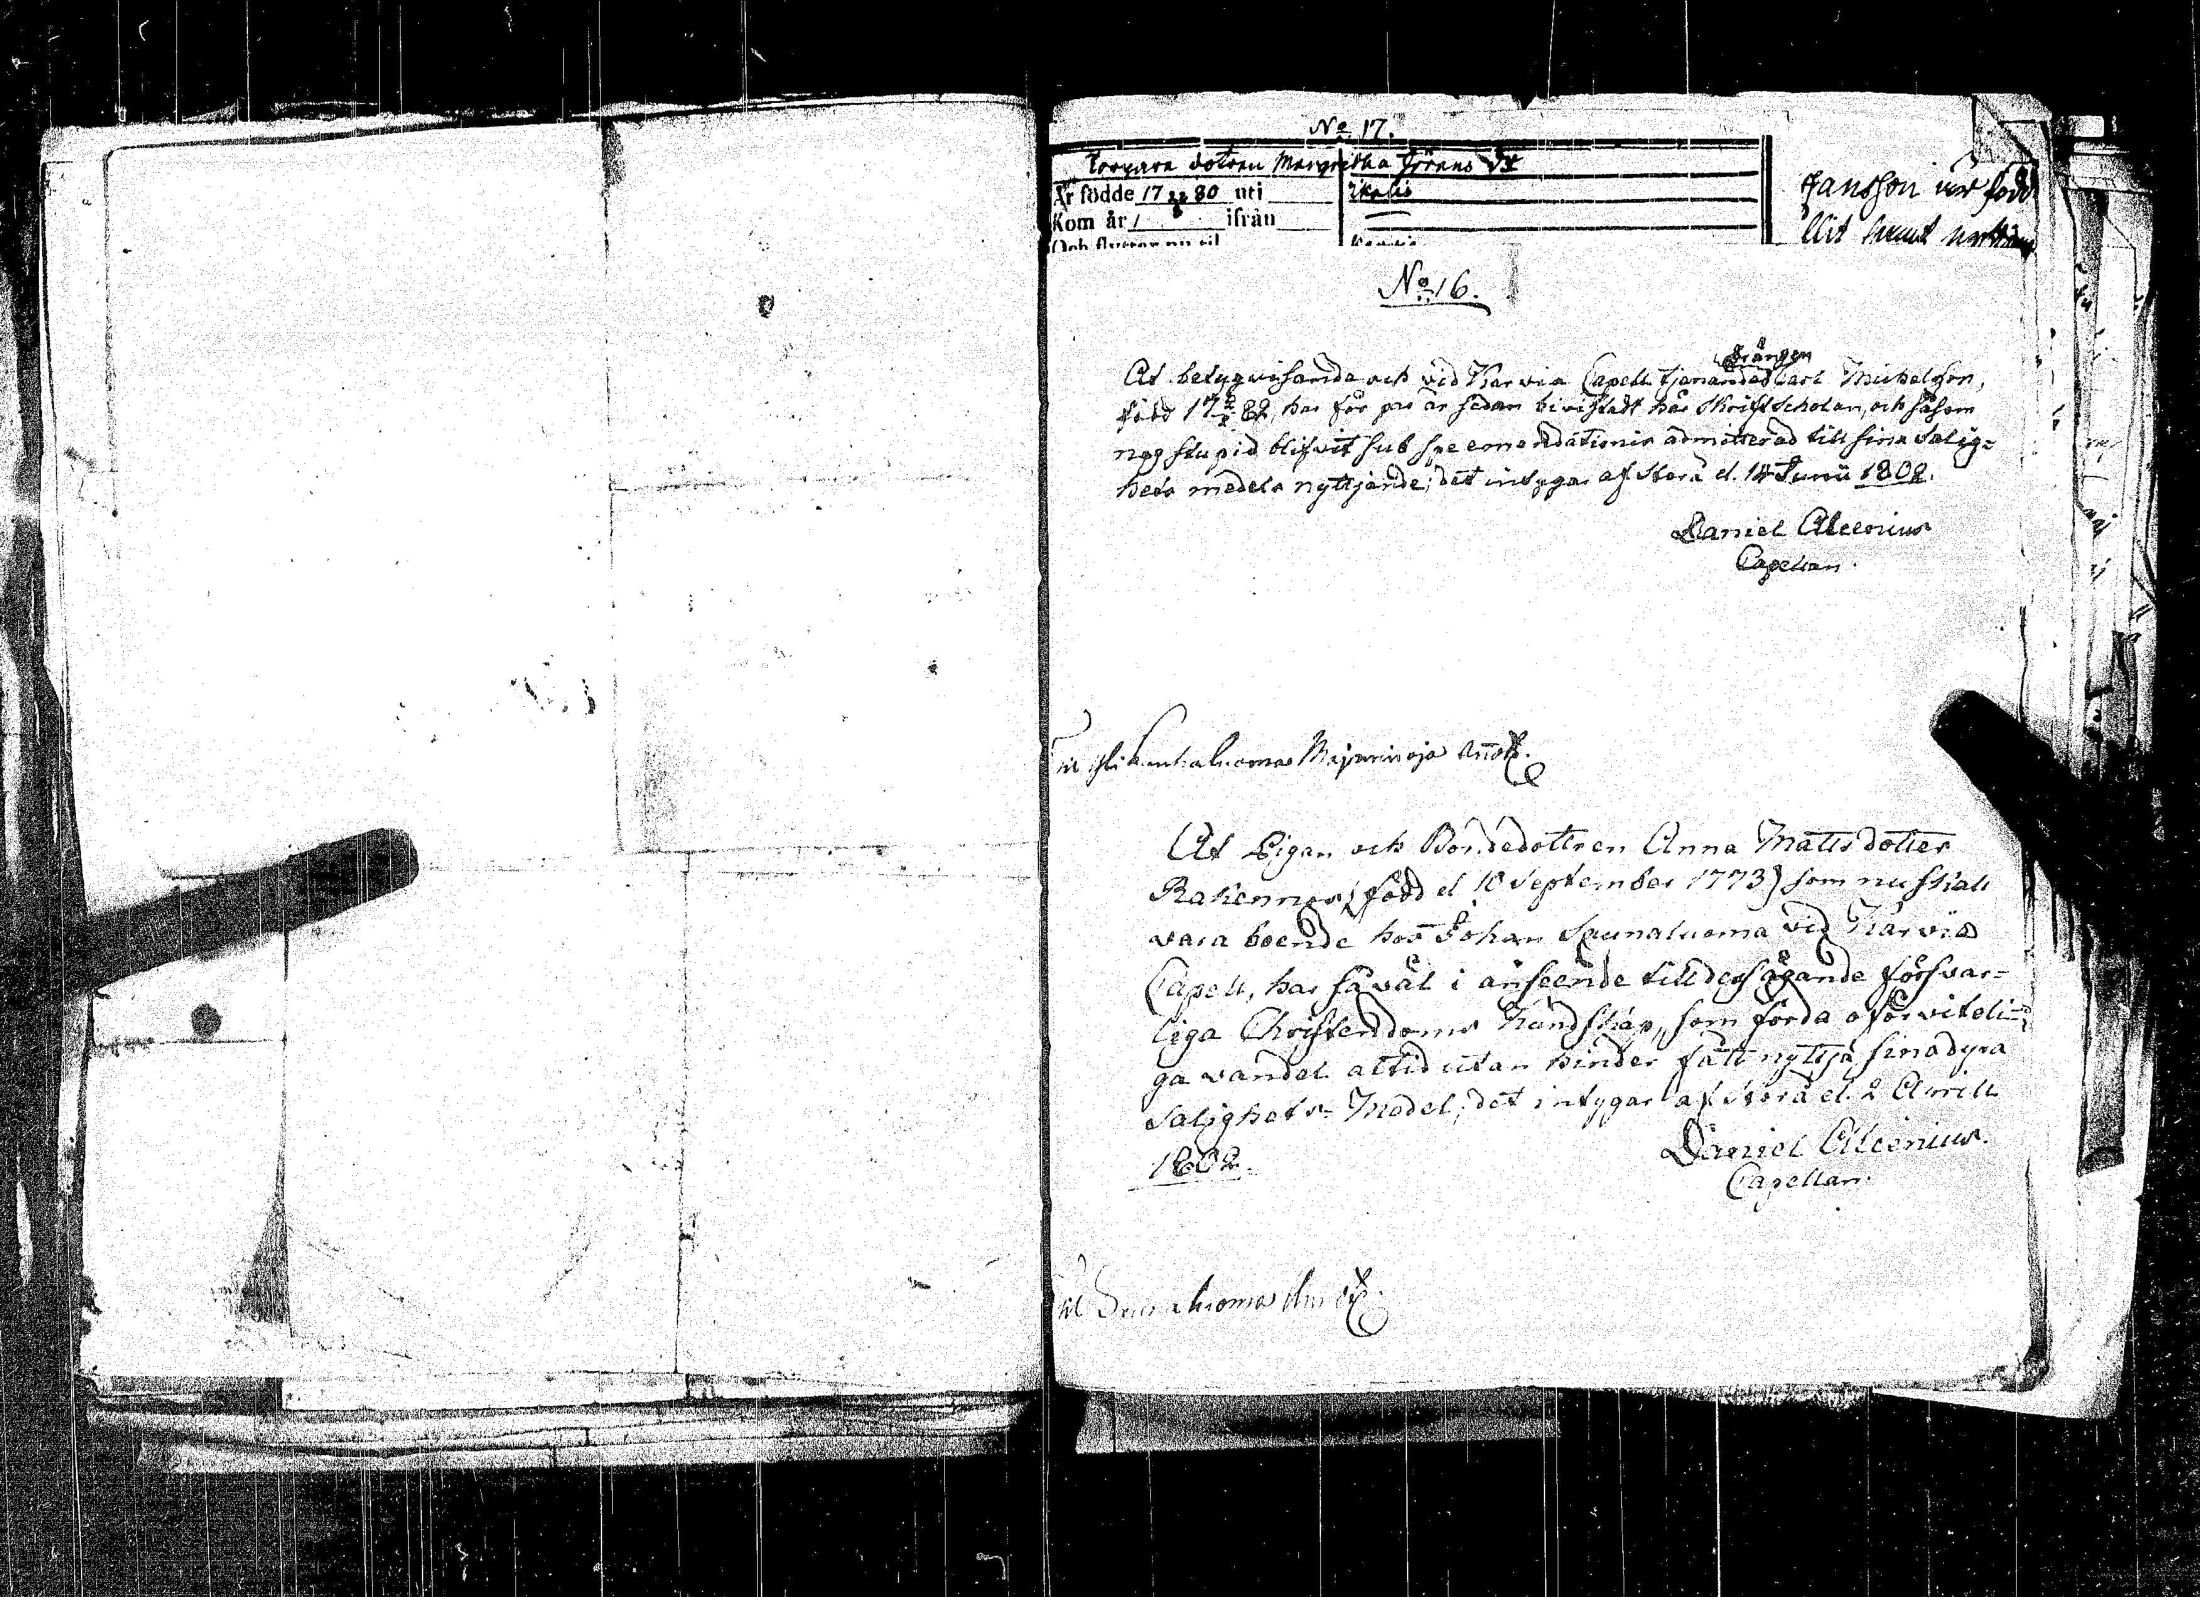 No 17.
Torpare dotren Margretha Jörans Dr
Är födde 17 80 uti Ikalis
Kom år 1 ifrån
Och flyttar nu til
Jansson är född
No 16.
Drängen
At betygvisande och vid Karvia Capell tjenande Carl Michelsson,
född 17 82, har för par år sedan bivistadt här Skriftscholan, och såsom
nog stupid blifvit sub spe emendationis admitterad till sina Salig=
hets medels nyttjande; det intygar af Storå d. 14 Junii 1802.
Daniel Alcenius
Capellan.
til Majaninoja
At Pigan och Bondedottren Anna Mattsdotter
Rakennus (född d 10 September 1773) som nu skall
vara boende hos Johan Saunaluoma vid Karvia
Capell, har så väl i anseende till des ägande försvar=
liga Christendoms Kundskap, som förda oförviteli=
ga vandel altid utan hinder fått nyttja sina dyra
Salighets= Medel; det intygar af Storå d. 2 Aprill
1802.
Daniel Alcenius.
Capellan.
til Saunaluoma